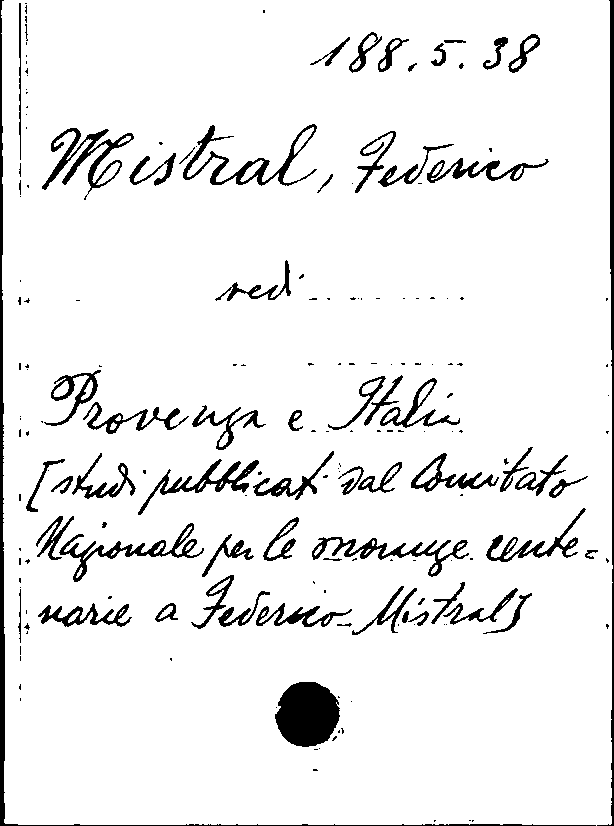 188.5.38
Mistral, Federico
vedi
Provenza e Italia
[studi pubblicati dal Comitato
Nazionale per le onoranze cente=
narie a Federico Mistral]